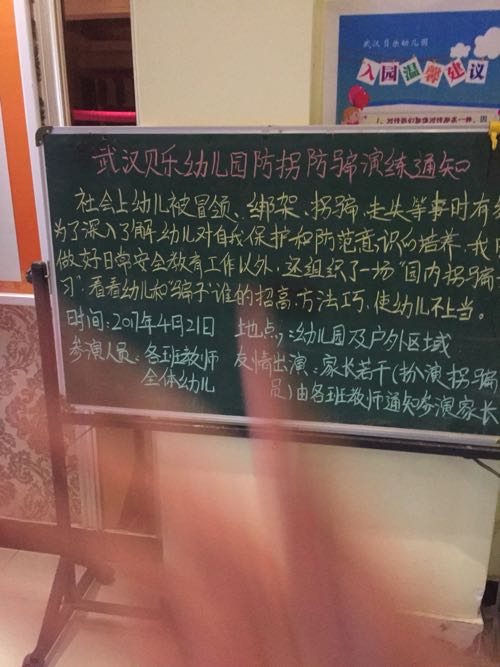 武汉贝乐幼儿园
入园温馨建议
武汉贝乐幼儿园防拐防骗演练通知
社会上幼儿被冒领、绑架、拐骗、走失等事时有
为了深入了解幼儿对自我保护和防范意识的培养，我
做好日常安全教育工作以外，还组织了一场“园内拐骗
习”看看幼儿和“骗子”谁的招高，方法巧，使幼儿不上当。
时间：2017年4月21日 地点：幼儿园及户外区域
参演人员：各班教师 友情出演：家长若干（扮演拐骗
全体幼儿 员）由各班教师通知参演家长